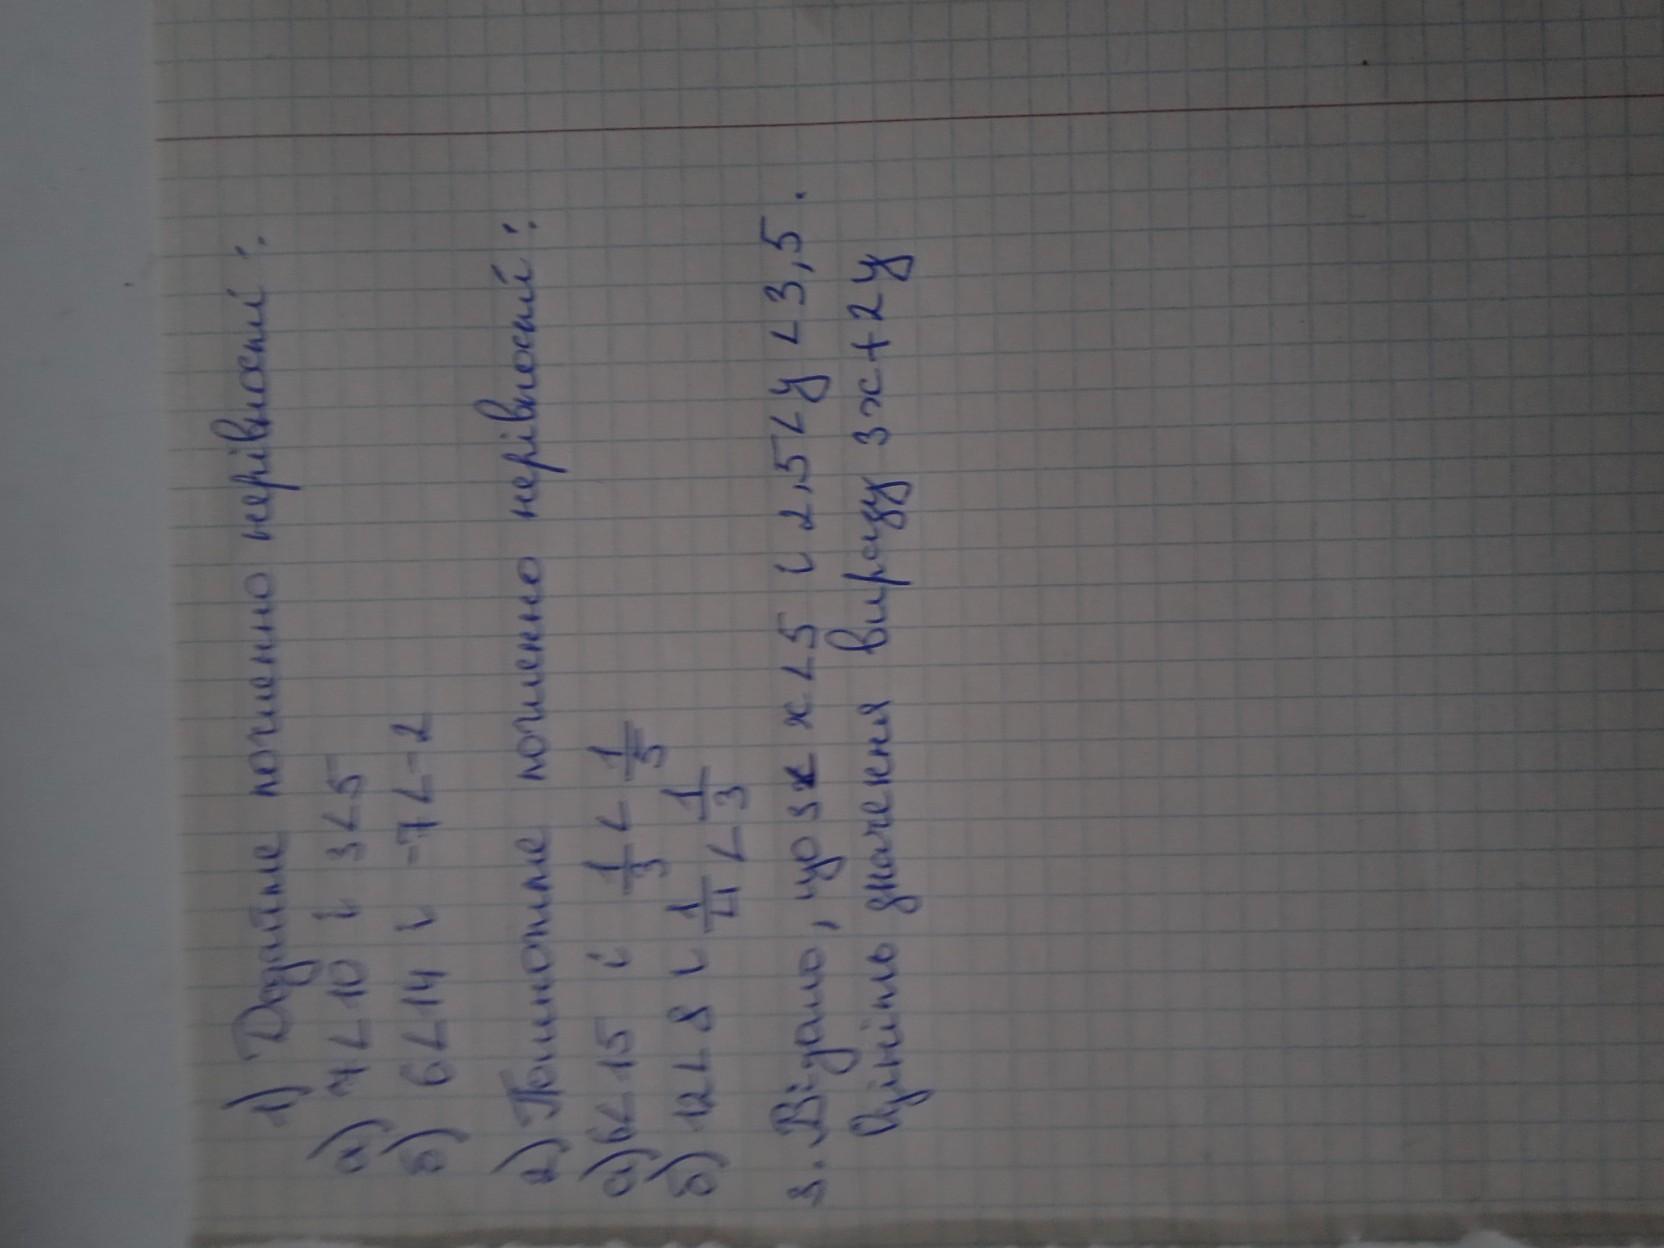 1) Додайте почленно нерівності:
а) 7 < 10 і 3 < 5
б) 6 < 14 і -7 < -2
2) Помножте почленно нерівності:
а) 6 < 15 і 1/3 < 1/5
б) 12 < 8 і 1/4 < 1/3
3. Відомо, що 3 < x < 5 і 2,5 < y < 3,5.
Оцініть значення виразу 3x + 2y